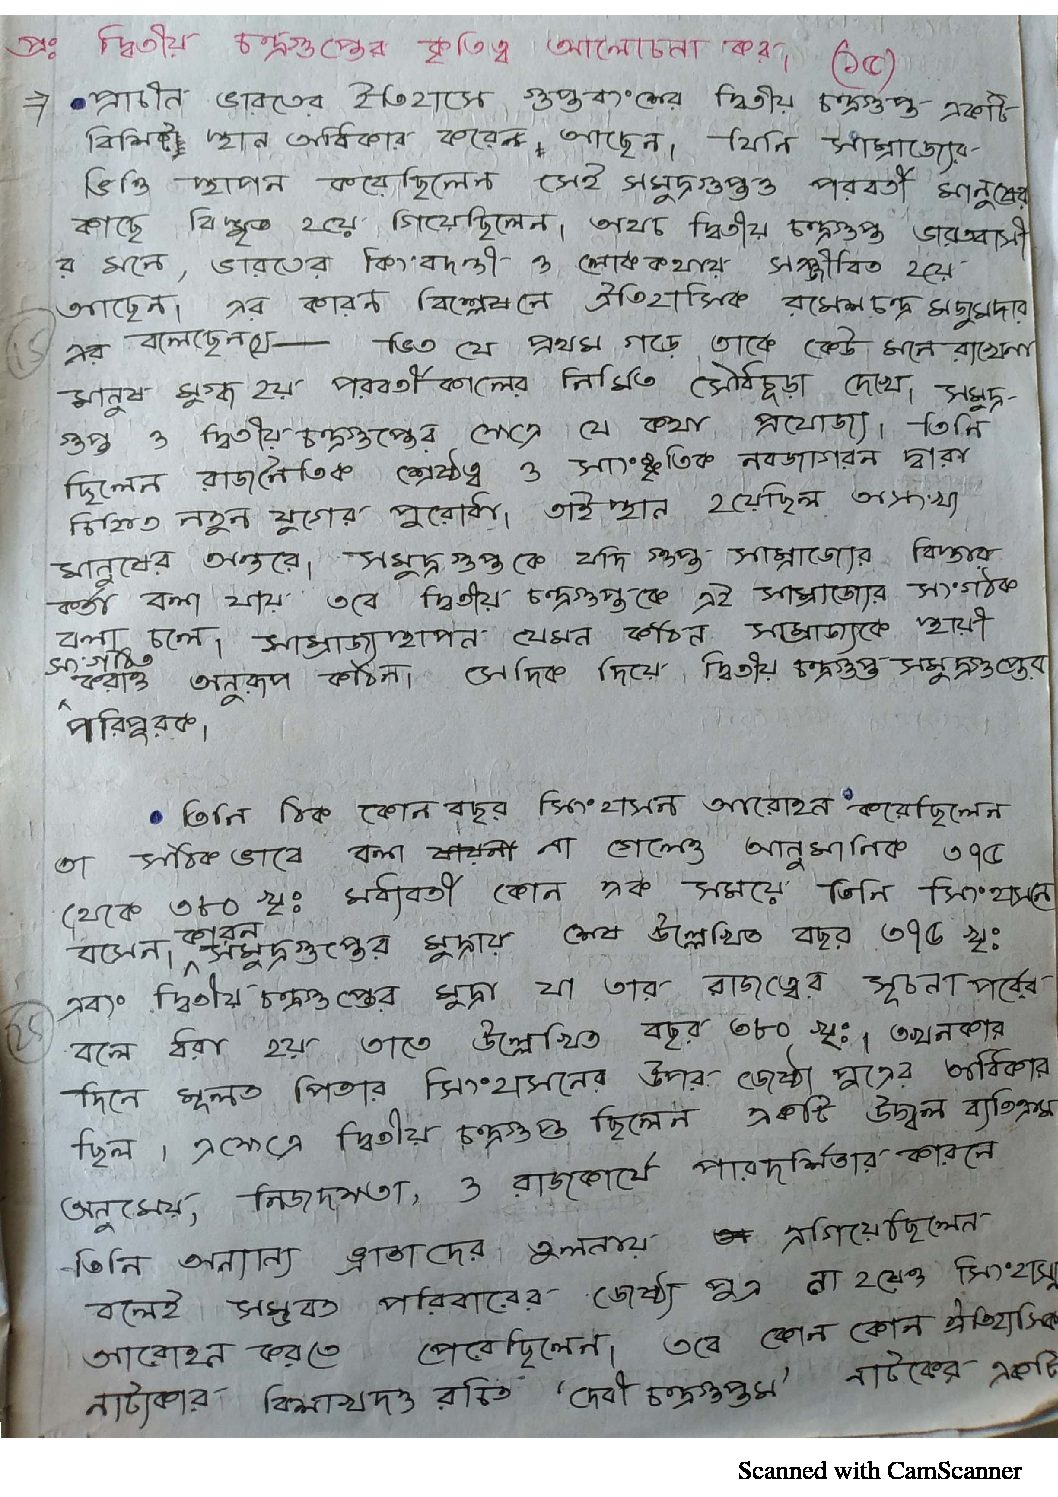 প্রঃ দ্বিতীয় চন্দ্রগুপ্তের কৃতিত্ব আলোচনা কর। (১৫)
⇒ • প্রাচীন ভারতের ইতিহাসে গুপ্তবংশের দ্বিতীয় চন্দ্রগুপ্ত একটি
বিশিষ্ট স্থান অধিকার করেন, আছেন। যিনি সাম্রাজ্যের
ভিত্তি স্থাপন করেছিলেন সেই সমুদ্রগুপ্তও পরবর্তী মানুষের
কাছে বিস্মৃত হয়ে গিয়েছিলেন। অথচ দ্বিতীয় চন্দ্রগুপ্ত ভারতবাসী
র মনে, ভারতের কিংবদন্তী ও লোককথায় সঞ্জীবিত হয়ে
আছেন। এর কারন বিশ্লেষনে ঐতিহাসিক রমেশচন্দ্র মজুমদার
এর বলেছেন যে— ভিত যে প্রথম গড়ে তাকে কেউ মনে রাখেনা
মানুষ মুগ্ধ হয় পরবর্তীকালের নির্মিত সৌধচূড়া দেখে। সমুদ্র-
গুপ্ত ও দ্বিতীয় চন্দ্রগুপ্তের ক্ষেত্রে যে কথা প্রযোজ্য। তিনি
ছিলেন রাজনৈতিক শ্রেষ্ঠত্ব ও সাংস্কৃতিক নবজাগরন দ্বারা
চিহ্নিত নতুন যুগের পুরোধা। তাই স্থান হয়েছিল অসংখ্য
মানুষের অন্তরে। সমুদ্রগুপ্তকে যদি গুপ্ত সাম্রাজ্যের বিস্তার
কর্তা বলা যায় তবে দ্বিতীয় চন্দ্রগুপ্তকে এই সাম্রাজ্যের সংগঠক
বলা চলে। সাম্রাজ্য স্থাপন যেমন কঠিন সাম্রাজ্যকে স্থায়ী
সংগঠিত
করাও অনুরূপ কঠিন। সেদিক দিয়ে দ্বিতীয় চন্দ্রগুপ্ত সমুদ্রগুপ্তের
পরিপুরক।
• তিনি ঠিক কোন বছর সিংহাসন আরোহন করেছিলেন
তা সঠিক ভাবে বলা না গেলেও আনুমানিক ৩৭৫
থেকে ৩৮০ খৃঃ মধ্যবর্তী কোন এক সময়ে তিনি সিংহাসনে
বসেন। কারন সমুদ্রগুপ্তের মুদ্রায় শেষ উল্লেখিত বছর ৩৭৫ খৃঃ
এবং দ্বিতীয় চন্দ্রগুপ্তের মুদ্রা যা তার রাজত্বের সূচনা পর্বের
বলে ধরা হয় তাতে উল্লেখিত বছর ৩৮০ খৃঃ। তখনকার
দিনে মূলত পিতার সিংহাসনের উপর জেষ্ঠ্য পুত্রের অধিকার
ছিল। এক্ষেত্রে দ্বিতীয় চন্দ্রগুপ্ত ছিলেন একটি উজ্বল ব্যতিক্রম
অনুমেয়, নিজদক্ষতা, ও রাজকার্যে পারদর্শিতার কারনে
তিনি অন্যান্য ভ্রাতাদের তুলনায় এগিয়েছিলেন
বলেই সম্ভবত পরিবারের জেষ্ঠ্য পুত্র না হয়েও সিংহাসন
আরোহন করতে পেরেছিলেন। তবে কোন কোন ঐতিহাসিক
নাট্যকার বিশাখদত্ত রচিত 'দেবী চন্দ্রগুপ্তম' নাটকের একটি
Scanned with CamScanner